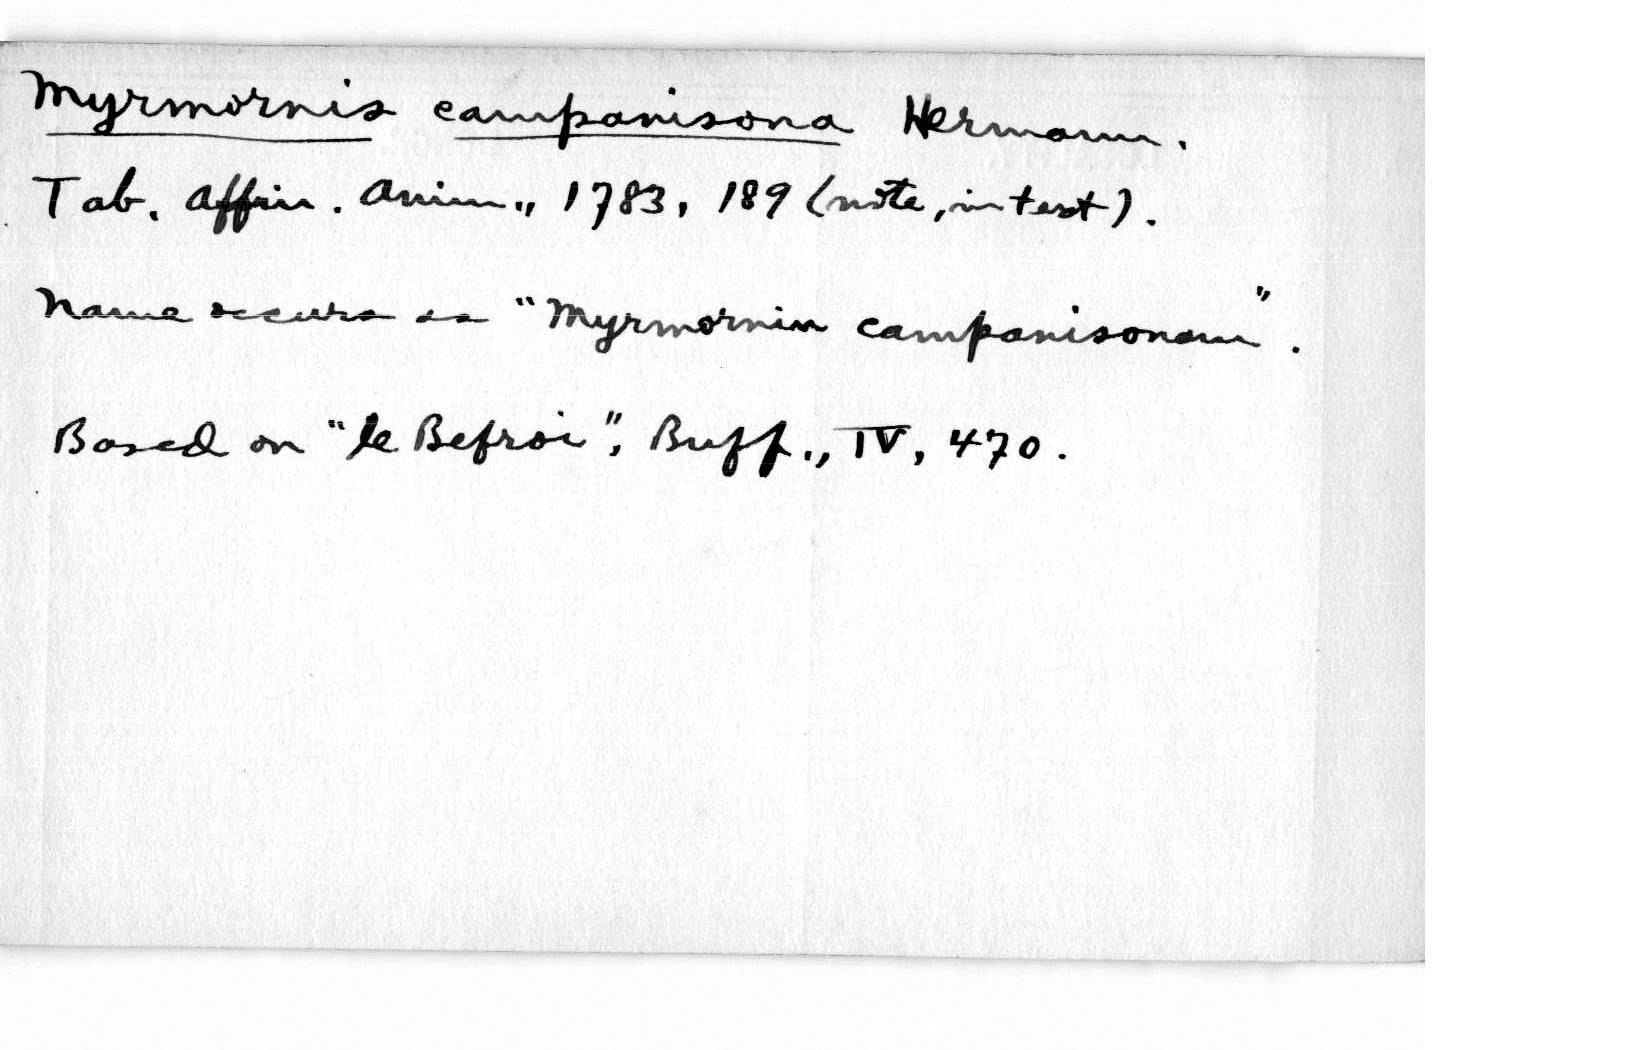 Myrmornis campanisona Hermann.
Tab. Affin. Anim., 1783, 189 (note, in text).
Name occurs as "Myrmornin campanisonam".
Based on "le Befroi", Buff., IV, 470.